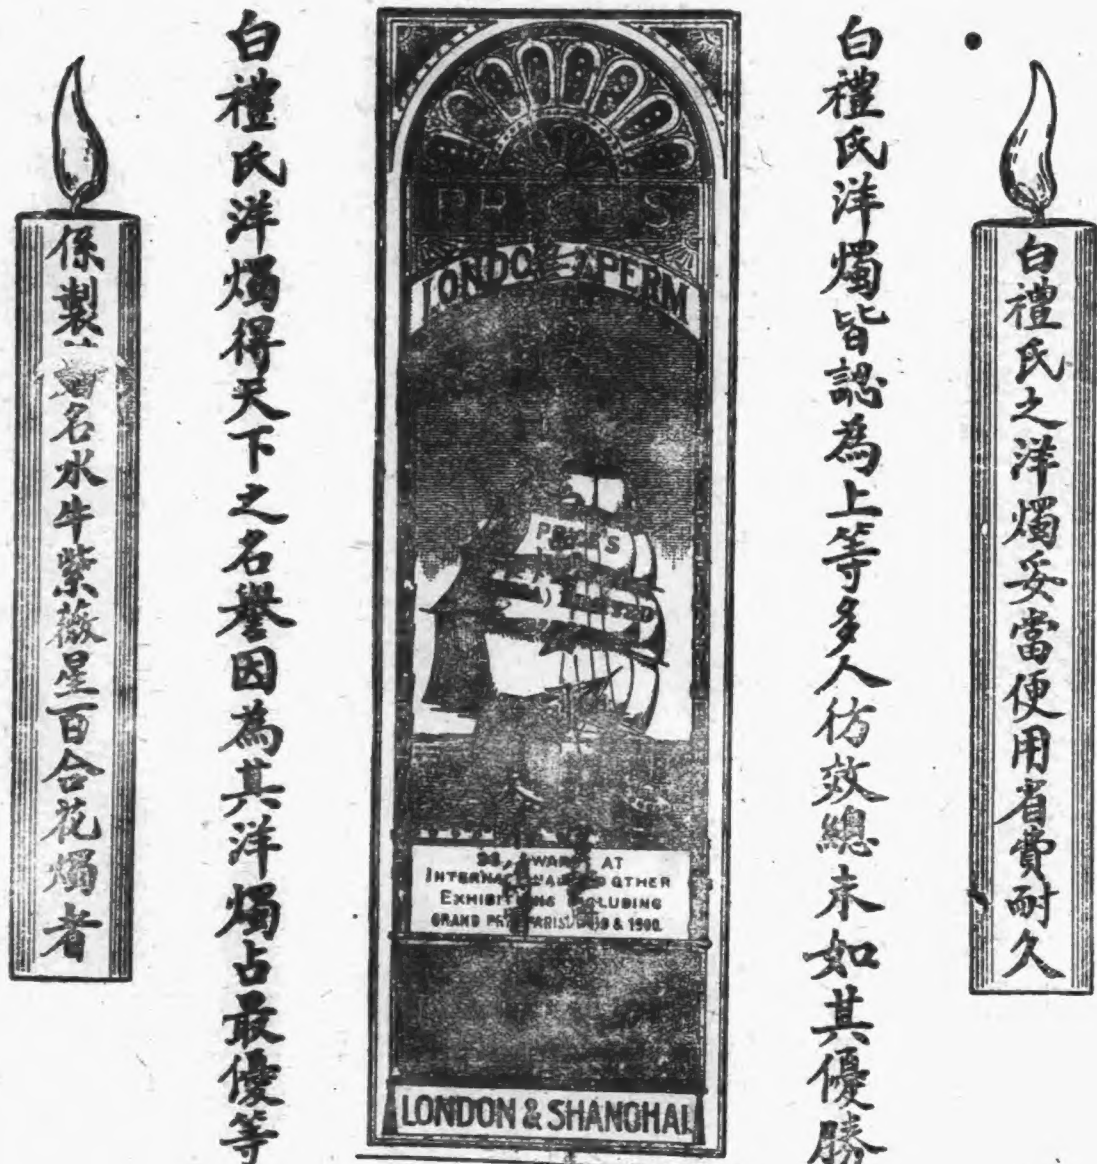 白禮氏之洋燭妥當便用省費耐久
白禮氏洋燭皆認為上等多人彷效總未如其優勝
PRICE'S
LONDON SPERM
PRICE'S
LIMITED
AT
INTERNATIONAL AND OTHER
EXHIBITIONS INCLUDING
GRAND PRIX PARIS & 1900.
LONDON & SHANGHAI
白禮氏洋燭得天下之名譽因為其洋燭占最優等
係製名水牛紫薇星百合花燭者